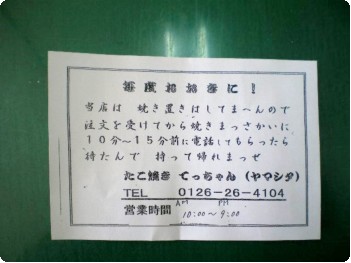 毎度おおきに！
当店は 焼き置きはしてまへんので
注文を受けてから焼きまっさかいに
10分～15分前に電話してもらったら
待たんで 持って帰れまっせ
たこ焼き てっちゃん（ヤマシタ）
TEL 0126-26-4104
AM PM
営業時間 10:00～9:00